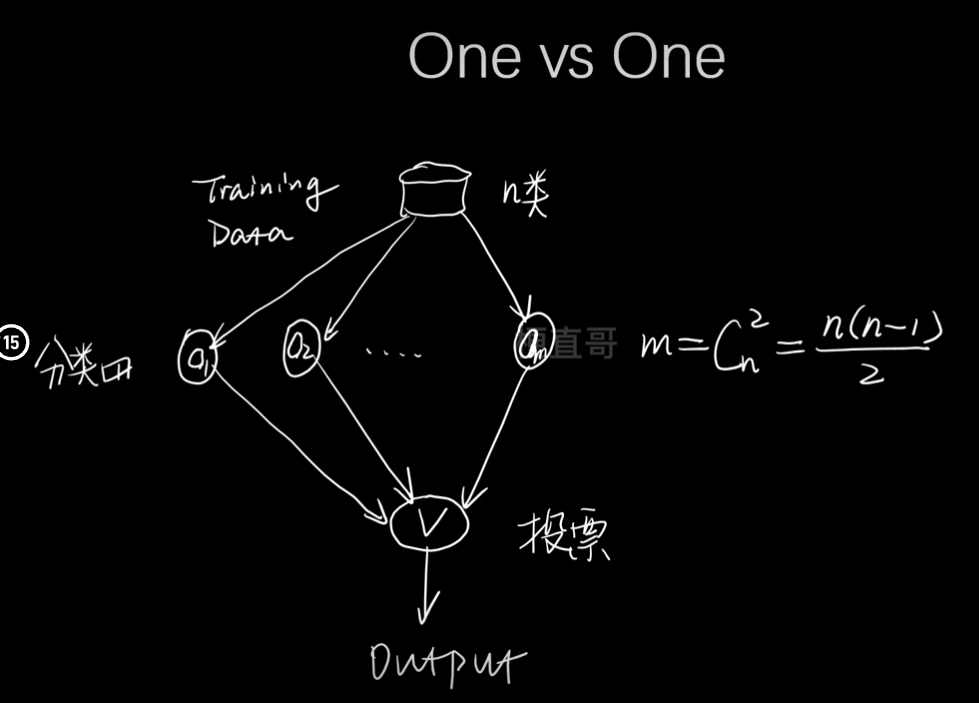 One vs One
Training
Data
n类
15
分类
a1
a2
....
am
直哥
m=C²ₙ=n(n-1)/2
V
投票
Output